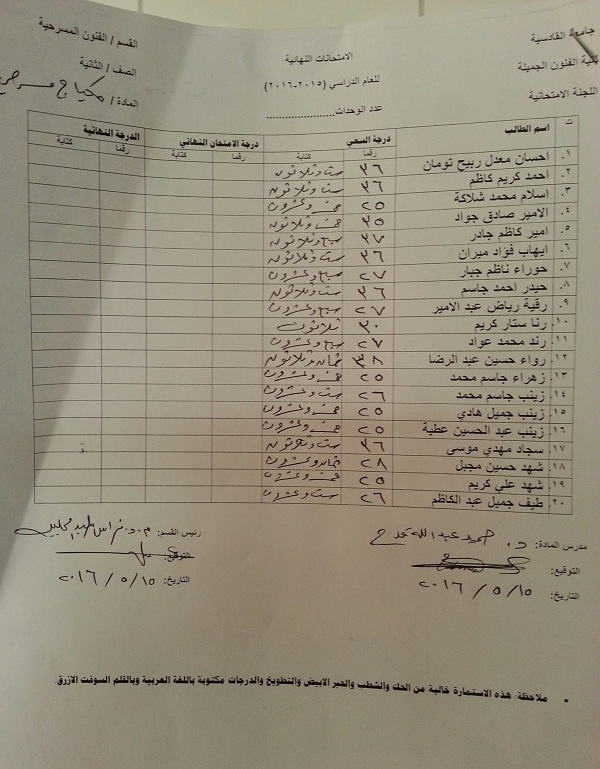 جامعة القادسية
كلية الفنون الجميلة
اللجنة الامتحانية
الامتحانات النهائية
للعام الدراسي (٢٠١٥-٢٠١٦)
عدد الوحدات......................
القسم / الفنون المسرحية
الصف / الثانية
المادة / مكياج مسرحي
ت اسم الطالب درجة السعي درجة الامتحان النهائي الدرجة النهائية
رقما كتابة رقما كتابة رقما كتابة
١. احسان معدل ربيح تومان ٣٦ ست وثلاثون
٢. احمد كريم كاظم ٣٦ ست وثلاثون
٣. اسلام محمد شلاكة ٢٥ خمس وعشرون
٤. الامير صادق جواد ٣٥ خمس وثلاثون
٥. امير كاظم جادر ٣٧ سبع وثلاثون
٦. ايهاب فؤاد ميران ٣٦ ست وثلاثون
٧. حوراء ناظم جبار ٢٧ سبع وعشرون
٨. حيدر احمد جاسم ٣٦ ست وثلاثون
٩. رقية رياض عبد الامير ٢٧ سبع وعشرون
١٠. رنا ستار كريم ٣٠ ثلاثون
١١. رند محمد عواد ٢٧ سبع وعشرون
١٢. رواء حسين عبد الرضا ٣٨ ثمان وثلاثون
١٣. زهراء جاسم محمد ٢٥ خمس وعشرون
١٤. زينب جاسم محمد ٢٦ ست وعشرون
١٥. زينب جميل هادي ٢٥ خمس وعشرون
١٦. زينب عبد الحسين عطية ٢٥ خمس وعشرون
١٧. سجاد مهدي موسى ٣٦ ست وثلاثون
١٨. شهد حسين مجبل ٢٨ ثمان وعشرون
١٩. شهد علي كريم ٢٥ خمس وعشرون
٢٠. طيف جميل عبد الكاظم ٢٦ ست وعشرون
مدرس المادة: د. حميد عبد الله
التوقيع:
التاريخ: ٢٠١٦ / ٥ / ١٥
رئيس القسم: م.د. فراس
التوقيع:
التاريخ: ٢٠١٦ / ٥ / ١٥
• ملاحظة: هذه الاستمارة خالية من الحك والشطب والحبر الابيض والتطويخ والدرجات مكتوبة باللغة العربية وبالقلم السوفت الازرق.